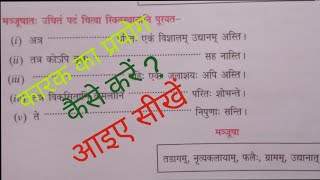 मञ्जूषातः उचितं पदं चित्वा रिक्तस्थानानि पूरयत-
(i) अत्र एकं विशालम् उद्यानम् अस्ति।
(ii) तत्र कोऽपि सह नास्ति।
(iii) एकः जलाशयः अपि अस्ति।
(iv) परितः शोभन्ते।
(v) ते निपुणाः सन्ति।
मञ्जूषा
तडागम्, नृत्यकलायाम्, फलैः, ग्रामम्, उद्यानात्
कारक का प्रयोग
कैसे करें ?
आइए सीखें